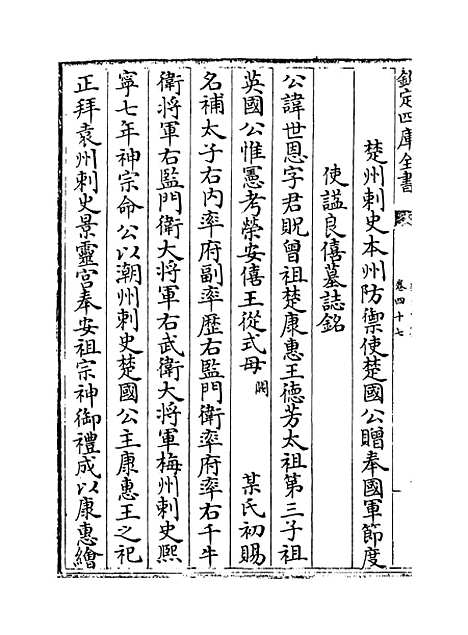 欽定四庫全書
卷四十七
楚州刺史本州防禦使楚國公贈奉國軍節度
使謚良僖墓誌銘
公諱世恩字君貺曾祖楚康惠王德芳太祖第三子祖
英國公惟憲考榮安僖王從式母闕某氏初賜
名補太子右内率府副率歷右監門衛率府率右千牛
衛將軍右監門衛大將軍右武衛大將軍梅州刺史熙
寧七年神宗命公以潮州刺史楚國公主康惠王之祀
正拜袁州刺史景靈宫奉安祖宗神御禮成以康惠繪